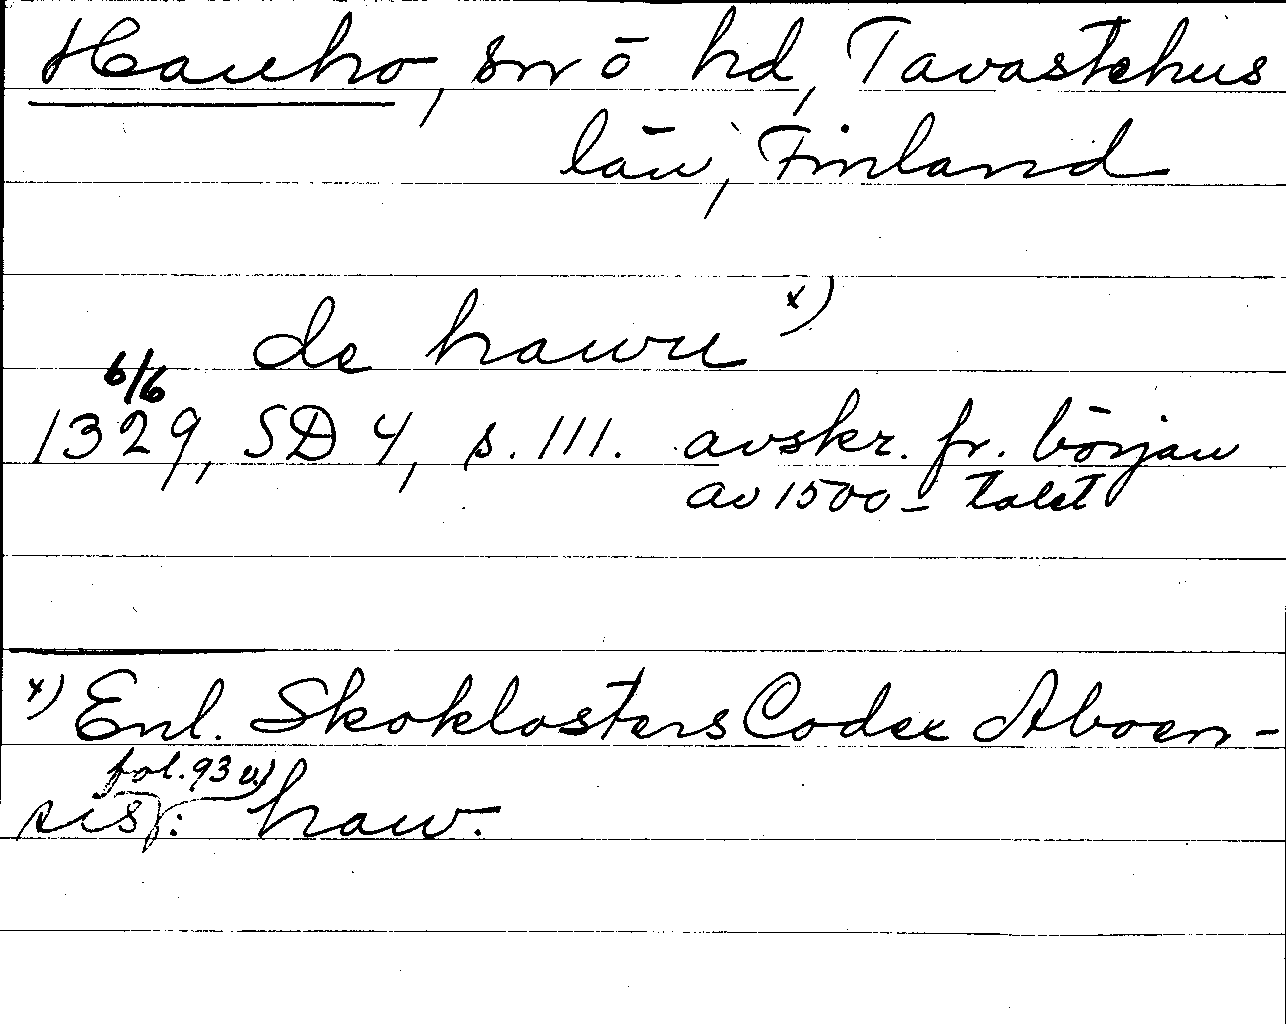 Hauho, sn ö hd, Tavastehus
län, Finland
de hawu x)
6/6
1329, SD 4, s. 111. avskr. fr. början
av 1500-talet
x) Enl. Skoklosters Codex Aboen-
fol. 93 v.)
sis: haw.